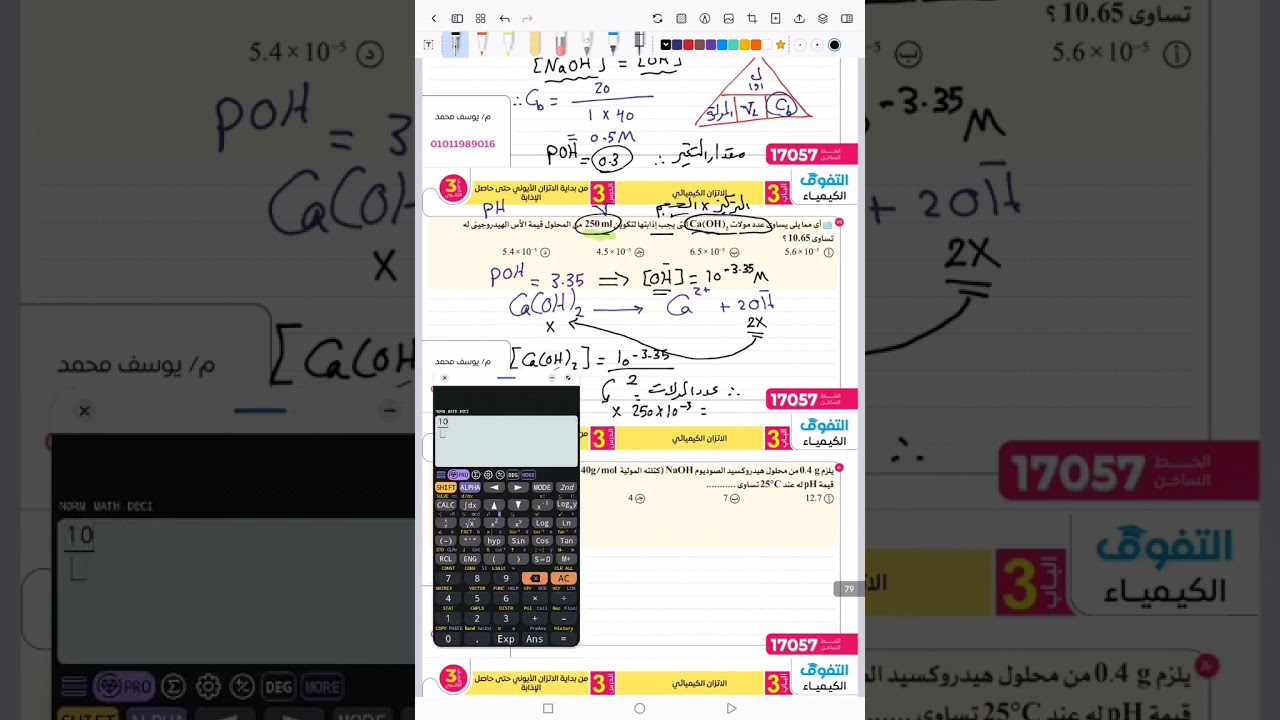 [NaOH] = [OH]
∴ Cb = 20 / 1 × 40
= 0.5 M
POH = 0.3 ∴ مقدار التغير
Cb
م/ يوسف محمد
01011989016
الخط الساخن 17057
التفوق الكيمياء
الباب 3
الاتزان الكيميائي
الدرس 3
من بداية الاتزان الأيوني حتى حاصل الإذابة
3
PH
التركيز × الحجم
أى مما يلى يساوى عدد مولات Ca(OH)₂ التى يجب إذابتها لتكوين 250 ml من المحلول قيمة الأس الهيدروجينى له
تساوى 10.65 ؟
أ 5.6 × 10⁻⁵
ب 6.5 × 10⁻⁵
ج 4.5 × 10⁻⁵
د 5.4 × 10⁻⁵
POH = 3.35 ⇒ [OH⁻] = 10^-3.35 M
Ca(OH)₂ → Ca²⁺ + 2OH⁻
X 2X
م/ يوسف محمد
[Ca(OH)₂] = 10^-3.35 / 2
∴ عدد المولات =
× 250 × 10⁻³ =
الخط الساخن 17057
التفوق الكيمياء
الباب 3
الاتزان الكيميائي
يلزم 0.4 g من محلول هيدروكسيد الصوديوم NaOH (كتلته المولية 40g/mol
قيمة pH له عند 25°C تساوى ...........
أ 12.7
ب 7
ج 4
79
NORM MATH DECI
10
PRO DEG MORE
SHIFT ALPHA MODE 2nd
CALC ∫dx x⁻¹ Logₓy
√x x² xʸ Log Ln
(−) °'" hyp Sin Cos Tan
RCL ENG ( ) S⇔D M+
7 8 9 AC
4 5 6 × ÷
1 2 3 + −
0 . Exp Ans =
الخط الساخن 17057
التفوق الكيمياء
الباب 3
الاتزان الكيميائي
الدرس 3
من بداية الاتزان الأيوني حتى حاصل الإذابة
3